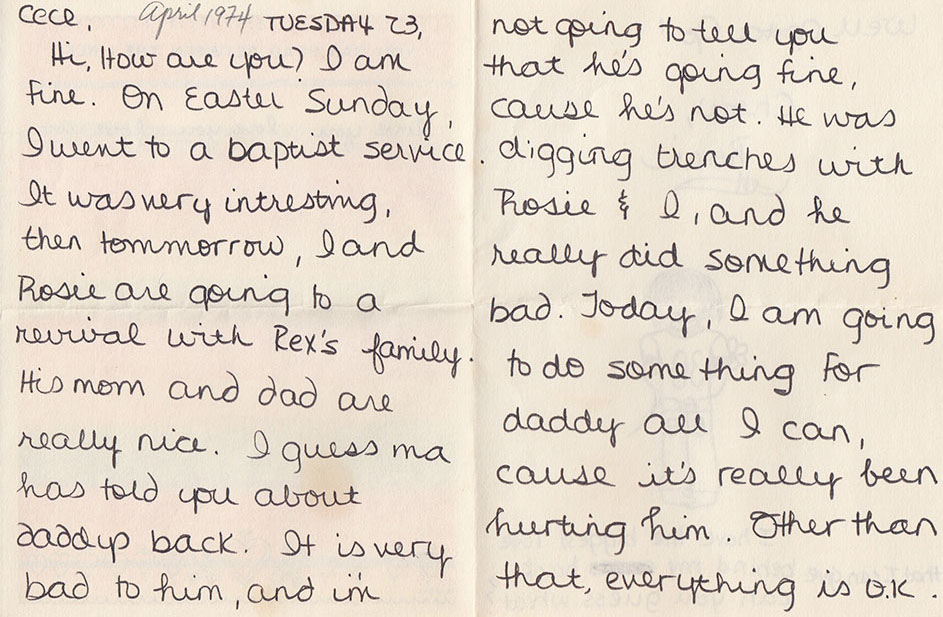 cece, April 1974 TUESDAY 23,
Hi, How are you? I am
fine. On Easter Sunday,
I went to a baptist service.
It was very intresting,
then tommorrow, I and
Rosie are going to a
revival with Rex's family.
His mom and dad are
really nice. I guess ma
has told you about
daddyp back. It is very
bad to him, and i'm
not going to tell you
that he's going fine,
cause he's not. He was
digging trenches with
Rosie & I, and he
really did something
bad. Today, I am going
to do something for
daddy all I can,
cause it's really been
hurting him. Other than
that, everything is o.k.